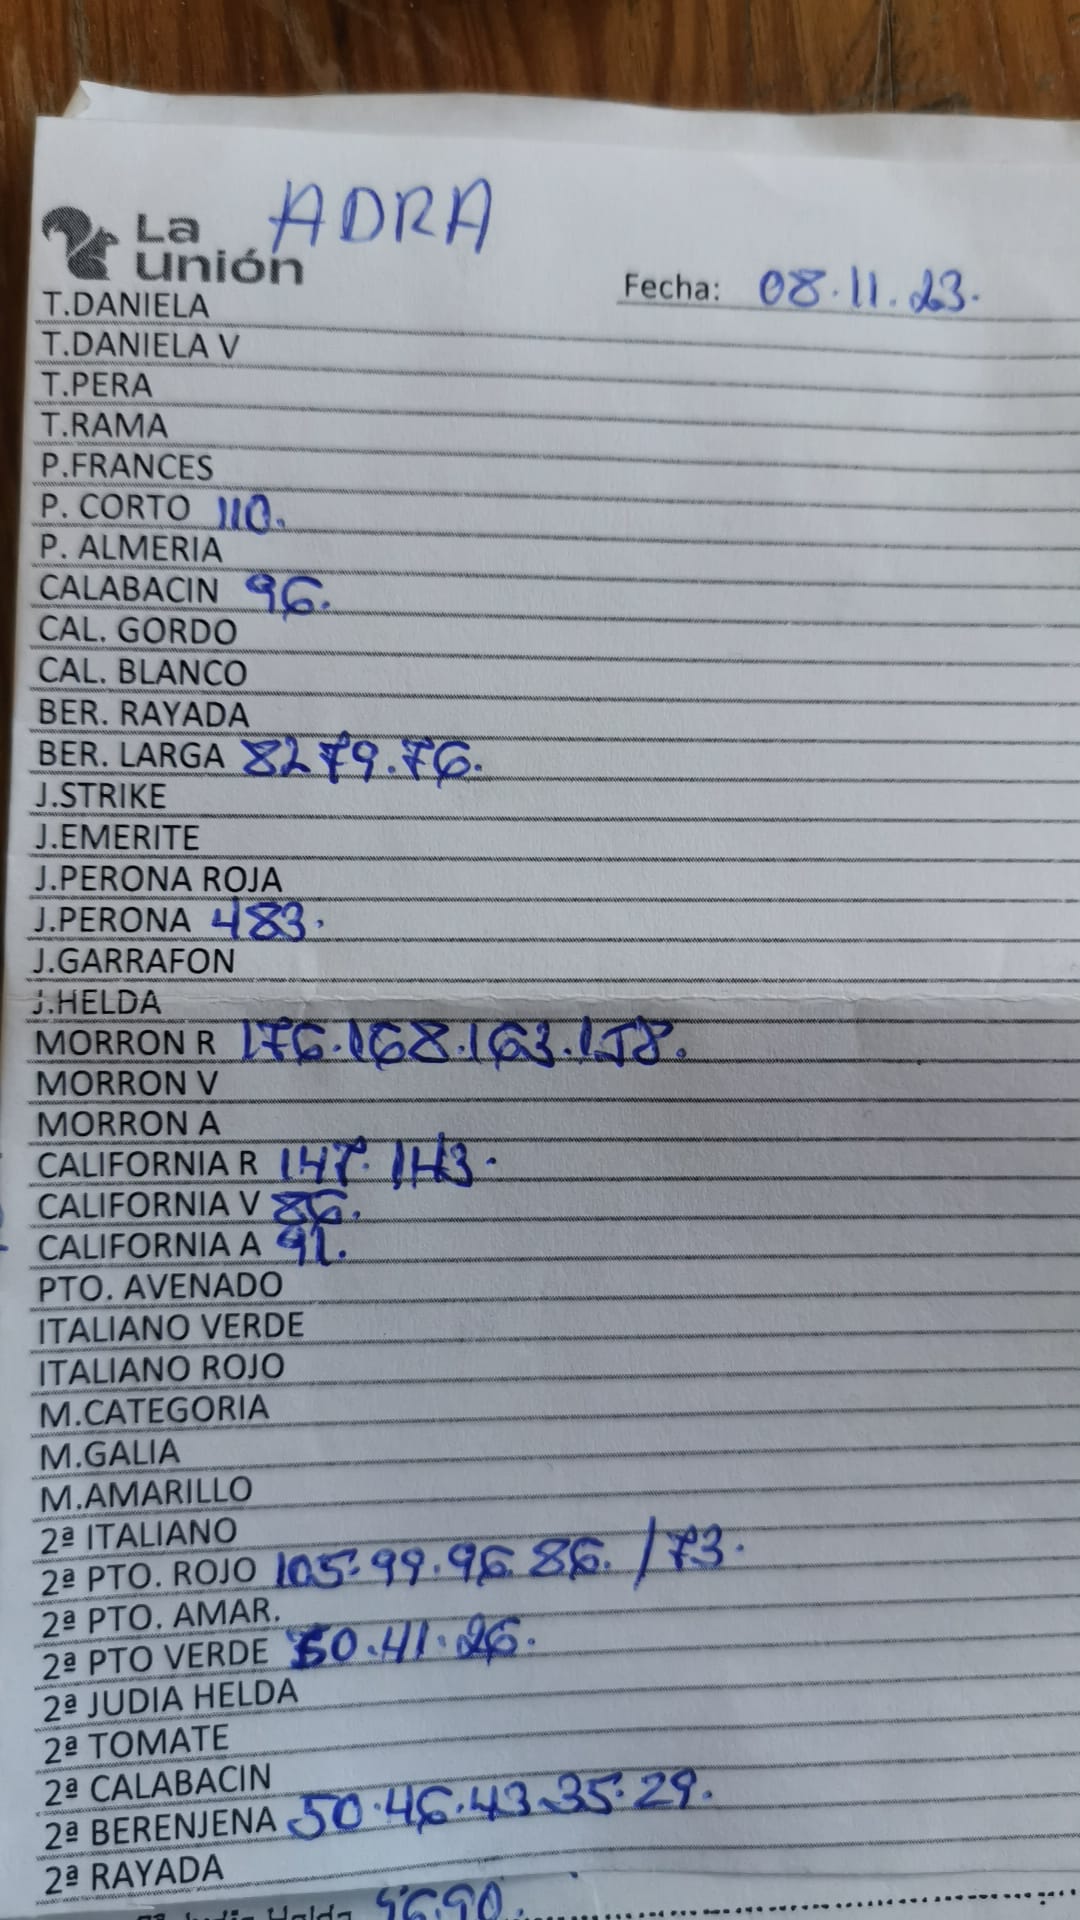 ADRA
La
unión
Fecha: 08.11.23.
T.DANIELA
T.DANIELA V
T.PERA
T.RAMA
P.FRANCES
P. CORTO 110.
P. ALMERIA
CALABACIN 96.
CAL. GORDO
CAL. BLANCO
BER. RAYADA
BER. LARGA 82 79.76.
J.STRIKE
J.EMERITE
J.PERONA ROJA
J.PERONA 483.
J.GARRAFON
J.HELDA
MORRON R 176.168.163.158.
MORRON V
MORRON A
CALIFORNIA R 147. 143.
CALIFORNIA V 86.
CALIFORNIA A 91.
PTO. AVENADO
ITALIANO VERDE
ITALIANO ROJO
M.CATEGORIA
M.GALIA
M.AMARILLO
2ª ITALIANO
2ª PTO. ROJO 105.99.96.86./73.
2ª PTO. AMAR.
2ª PTO VERDE 50.41.26.
2ª JUDIA HELDA
2ª TOMATE
2ª CALABACIN
2ª BERENJENA 50.46.43.35.29.
2ª RAYADA
Judia Helda